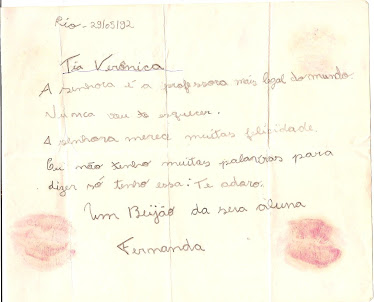 Rio - 29/05/92
Tia Verônica
A senhora é a professora mais legal do mundo.
Nunca vou te esquecer.
A senhora merece muitas felicidade.
Eu não tenho muitas palavras para
dizer só tenho essa: Te adoro.
Um Beijão da sua aluna
Fernanda